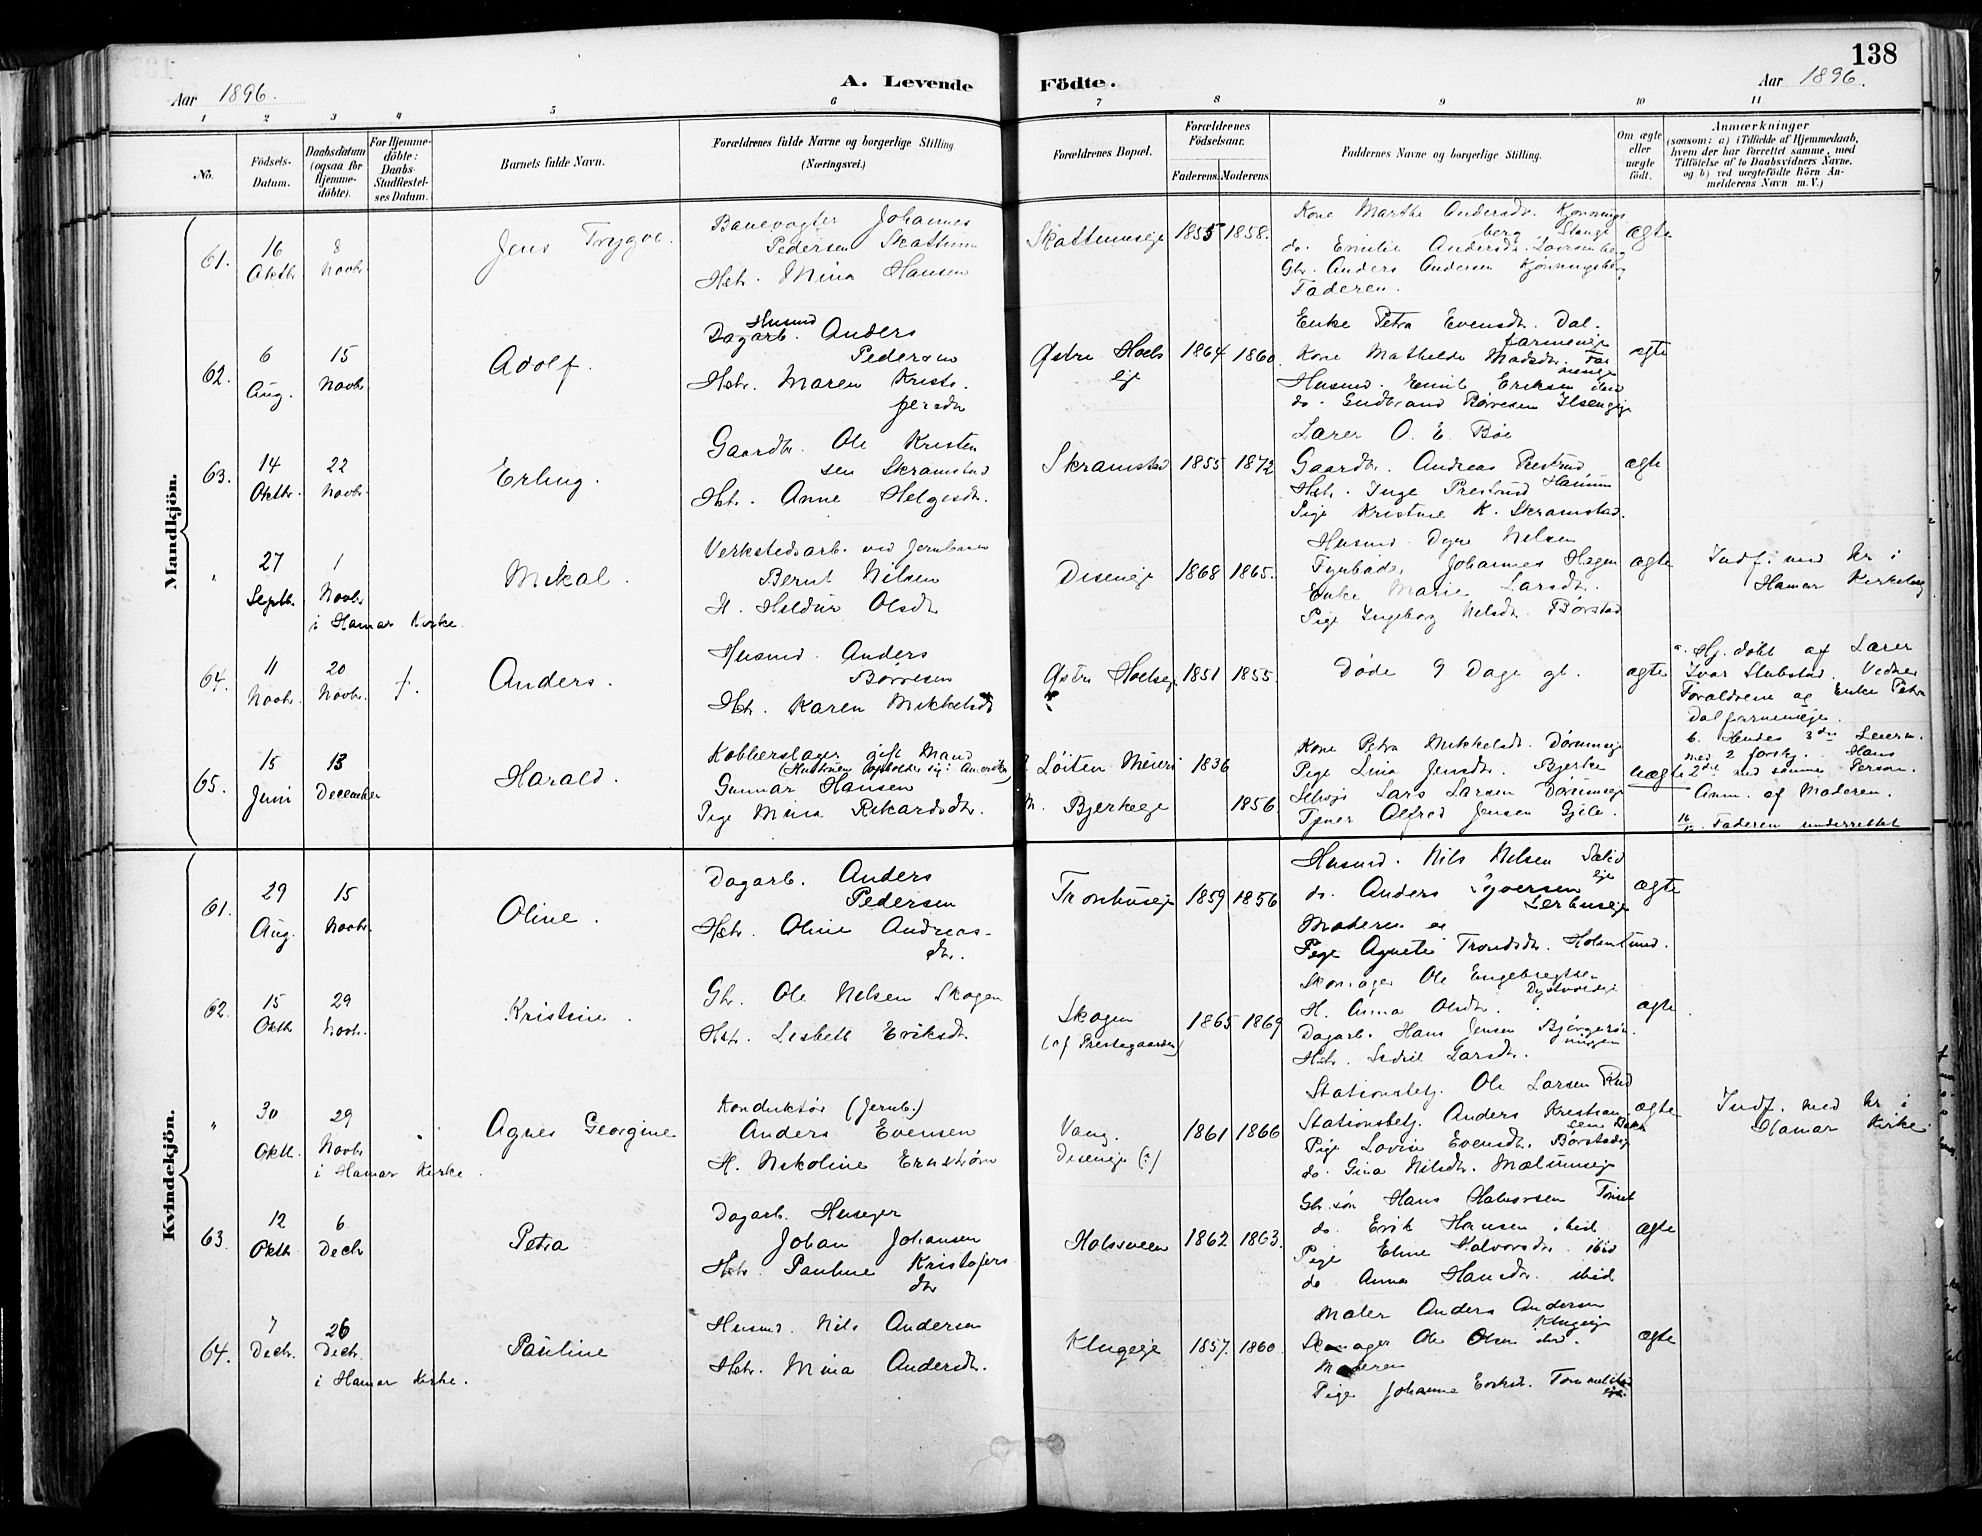 138
Aar 1896.
A. Levende Födte.
Aar 1896.
1 2 3 4 5 6 7 8 9 10 11
No.
Födsels-Datum.
Daabsdatum (ogsaa for Hjemme-döbte).
For Hjemme-döbte: Daabs-Stadfæstel-ses Datum.
Barnets fulde Navn.
Forældrenes fulde Navne og borgerlige Stilling (Næringsvei.)
Forældrenes Bopæl.
Forældrenes Födselsaar.
Faderens. Moderens.
Faddernes Navne og borgerlige Stilling.
Om ægte eller uægte födt.
Anmærkninger
(saasom: a) i Tilfælde af Hjemmedaab,
hvem der har forrettet samme, med
Tilföielse af to Daabsvidners Navne.
og b) ved uægtefödte Börn An-
melderens Navn m.V.)
Mandkjön.
61.
16 Oktbr.
8 Novbr.
Jens Trygve.
Banevogter Johannes
Pedersen Skattum
Hst. Mina Hansen
Skattumseje
1855 1858.
Kone Marthe Andersdr. Kjonnings
berg Stange
do. Emilie Andersdr.
Gbr. Anders Andersen Kjönningsberg
Faderen.
ægte
62.
6 Aug.
15 Novbr.
Adolf.
Husmd
Dagarb. Anders
Pedersen
Hstr. Maren Kristo-
fersdr
Østre Hoels
eje
1864 1860.
Enke Petra Evensdr. Dal-
farmeneje
Kone Mathilde Madsdr.
Husmd. Emil Eriksen ibid
do. Gudbrand Børresen Ilsengeje
ægte
63.
14 Oktbr.
22 Novbr.
Erling.
Gaardbr. Ole Kristen
sen Skramstad
Hst. Anne Helgesdr.
Skramstad
1855 1872
Lærer O. E. Bøe
Gaardbr. Andreas Prestrud
Hst. Inge Prestrud
Pige Kristine K. Skramstad.
ægte
"
27 Septb.
1 Novbr
i Hamar Kirke.
Mikal.
Verkstedsarb. ved Jernbanen
Bernt Nilsen
H. Hildur Olsdr
Diseneje
1868 1865.
Husmd. Dyre Nelsen
Fyrbøder Johannes Hagen
Enke Marie Larsdr.
Pige Ingeborg Nelsdr. Børstad
ægte
Indf. med Nr i
Hamar Kirkebog
64.
11 Novbr.
20 Novbr.
†.
Anders.
Husmd. Anders
Børresen
Hst. Karen Mikkelsdr
Østre Hoelseje
1851 1855.
Døde 9 Dage gl.
ægte
a. Hj. døbt af Lærer
Ivar Stubstad. Vedner
Forældrene og Enke Petra
Dalfarmeneje.
65.
15 Juni
13 December
Harald.
Kobberslager gift Mand
(Hustruen opholder sig i Amerika)
Gunnar Hansen
Pige Mina Rikardsdr.
Løiten Meieri
M. Bjerkeeje
1836
1856.
Kone Petra Mikkelsdr. Dørumseje
Pige Lina Jensdr. Bjerke
Lars Larsen Dørumseje
Tjener Alfred Jensen Gjile.
uægte
b. Hendes 3die Leierm.
med 2 forskj. Hans
2det med samme Person.
Anm. af Moderen.
Faderen underrettet
Kvindekjön.
61.
29 Aug.
15 Novbr.
Oline.
Dagarb. Anders
Pedersen
Hst. Oline Andreas-
dr.
Tronhuseje
1859 1856
Husmd. Nils Nelsen
eje
do. Anders Syversen
Lerhuseje
Moderen og
Pige Agnete Trondsdr. Holmlund.
ægte
62.
15 Oktb
29 Novbr.
Kristine.
Gbr. Ole Nelsen Skogen
Hst. Lisbeth Eriksdr
Skogen
(af Prestegaarden)
1865 1869
Skomager Ole Engebregtsen
H. Anna Olsdr.
Dagarb. Hans Jensen
Hst. Sidsil Larsdr.
ægte
"
30 Oktb.
29 Novbr
i Hamar Kirke
Agnes Georgine
Konduktør (Jernb.)
Anders Evensen
H. Nikoline Ernstrøm
Vang.
Diseneje (?)
1861 1866
Stationsbetj. Ole Larsen Rud
Stationsbetj. Anders Kristian
sen
Pige Lovise Evensdr. Børstadeje
do. Gina Nilsdr. Mælumseje
ægte
Indf. med Nr i
Hamar Kirke
63.
12 Oktb
6 Decbr
Petra
Dagarb. Huseger
Johan Johansen
Hst. Pauline Kristofers
dtr
Holssveen
1862 1863.
Gbr.søn Hans Halvorsen
do. Erik Hansen ibid
Pige Eline Halvorsdr. ibid
do. Anna Hansdr. ibid
ægte
64.
7 Decbr.
26 Decbr.
i Hamar Kirke.
Pauline
Husmd. Nils Andersen
Hstr. Mina Andersdr.
Klugeje
1857. 1860.
Maler Anders Andersen
Klugeje
Skomager Ole Olsen ibid.
Moderen
Pige Johanne Eriksd. Tommelstad
eje
ægte